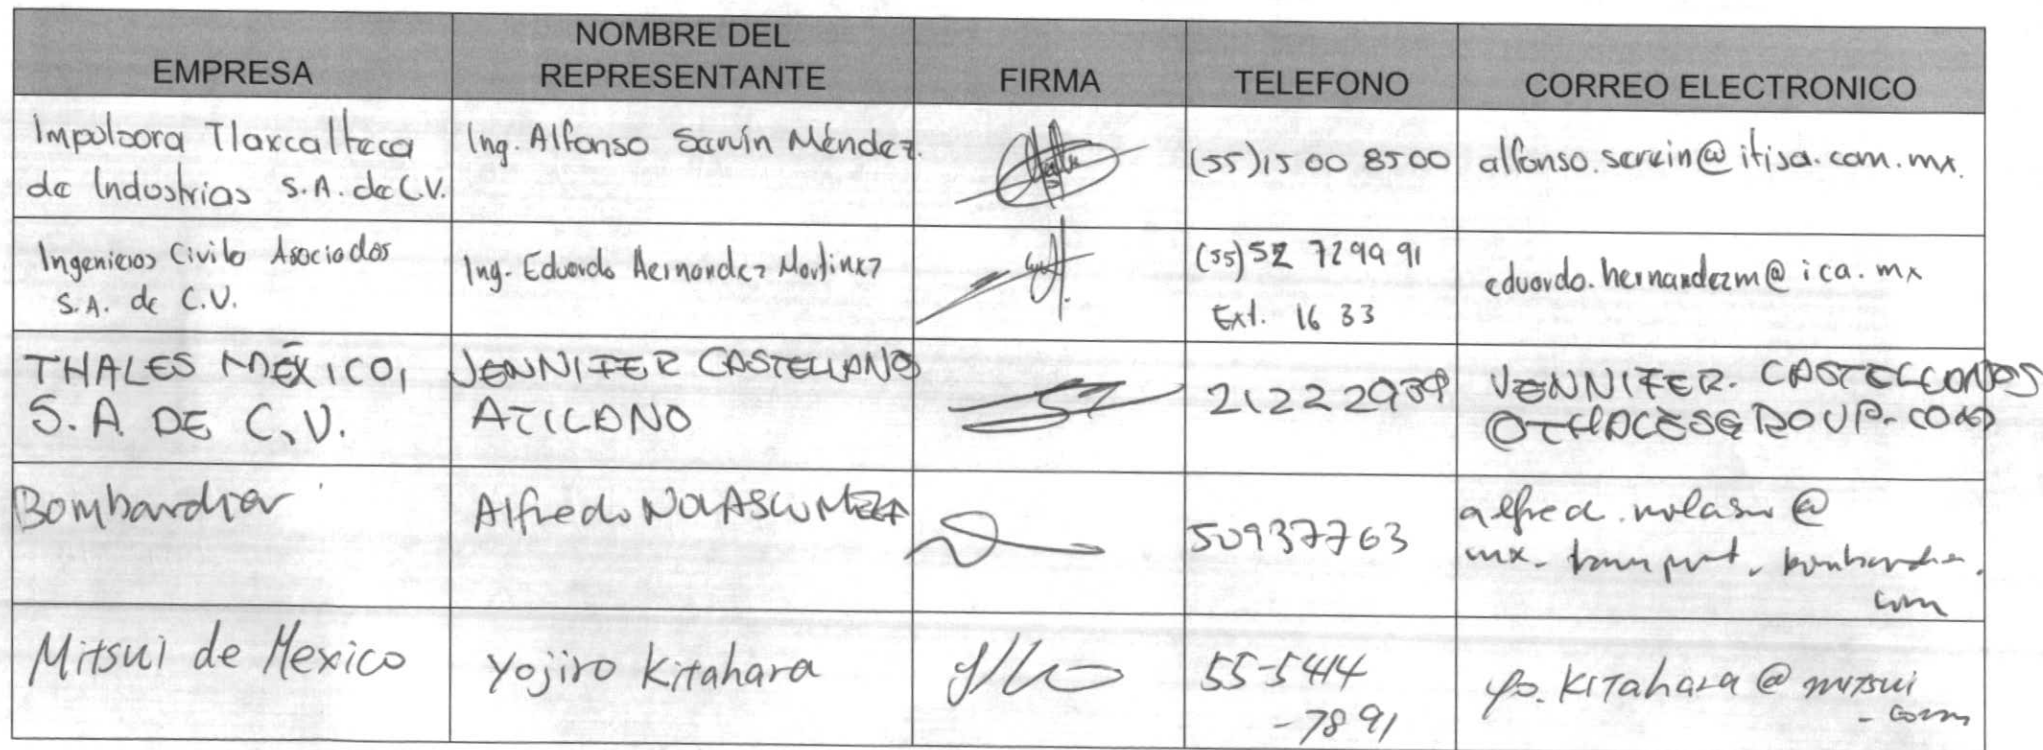 EMPRESA
NOMBRE DEL
REPRESENTANTE
FIRMA
TELEFONO
CORREO ELECTRONICO
Impulsora Tlaxcalteca
de Industrias S.A. de C.V.
Ing. Alfonso Servín Méndez.
(55)1500 8500
alfonso.servin@itisa.com.mx.
Ingenieros Civiles Asociados
S.A. de C.V.
Ing. Eduardo Hernandez Martinez
(55)52 729991
Ext. 1633
eduardo.hernandezm@ica.mx
THALES MÉXICO,
S.A. DE C.V.
JENNIFER CASTELLANO
ATILANO
21222939
JENNIFER.CASTELLANOS
@THALESGROUP.COM
Bombardier
Alfredo NOLASCO MEZA
50937763
alfred.nolasco@
mx.transport.bombardier.
com
Mitsui de Mexico
Yojiro Kitahara
55-5414
-7891
yo.Kitahara@mitsui
.com